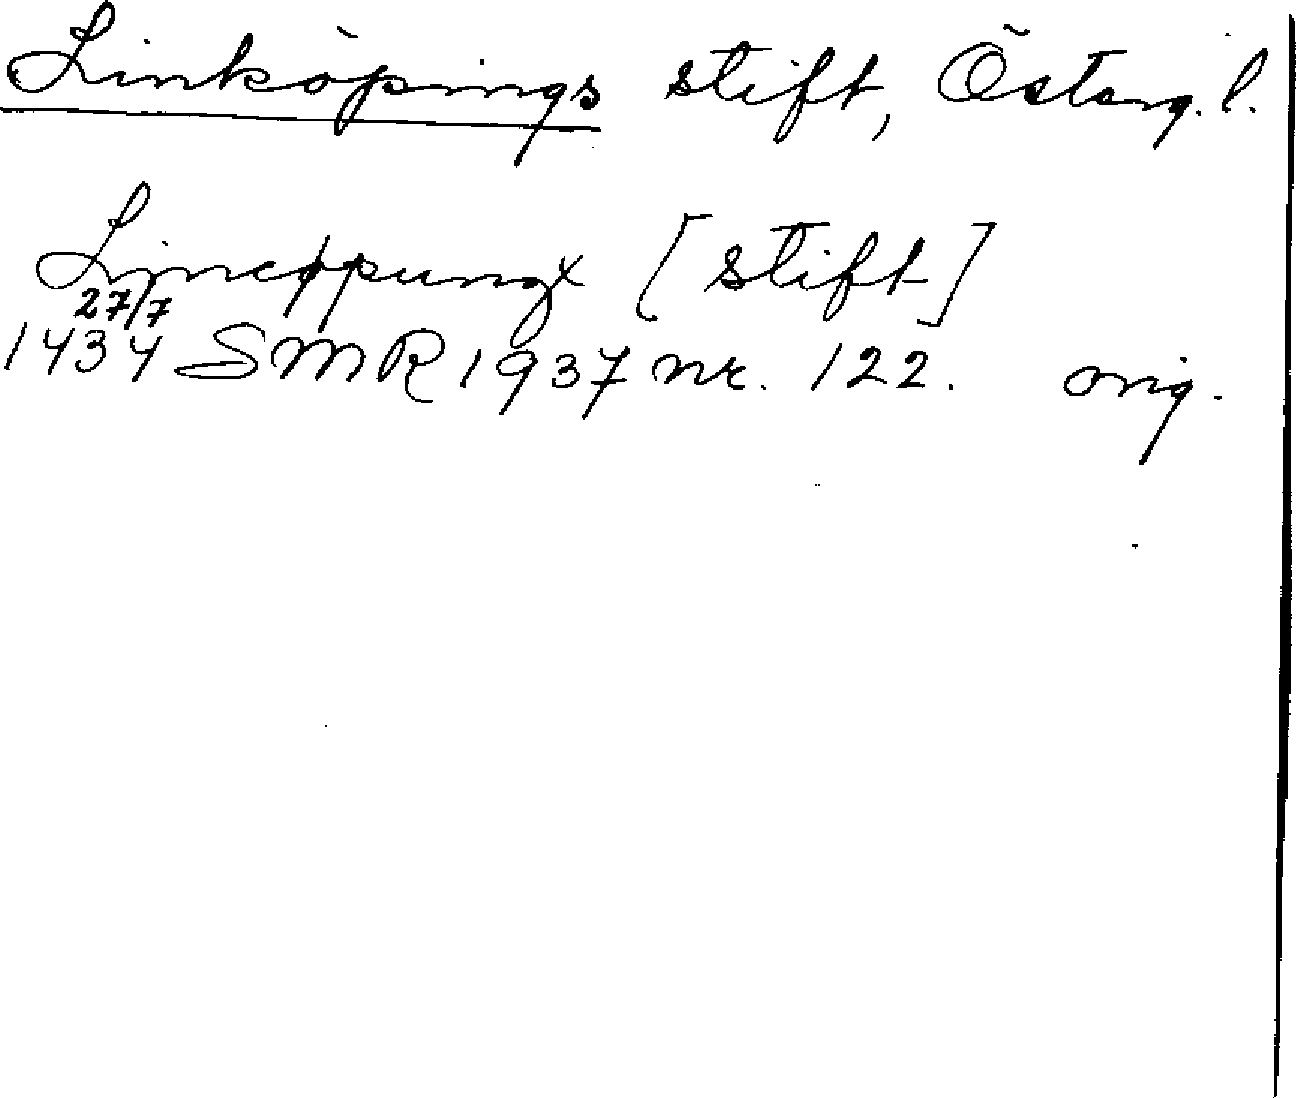 Linköpings stift, Österg. l.
Lincøpungx [stift]
27/7
1434 SMR 1937 nr. 122. orig.